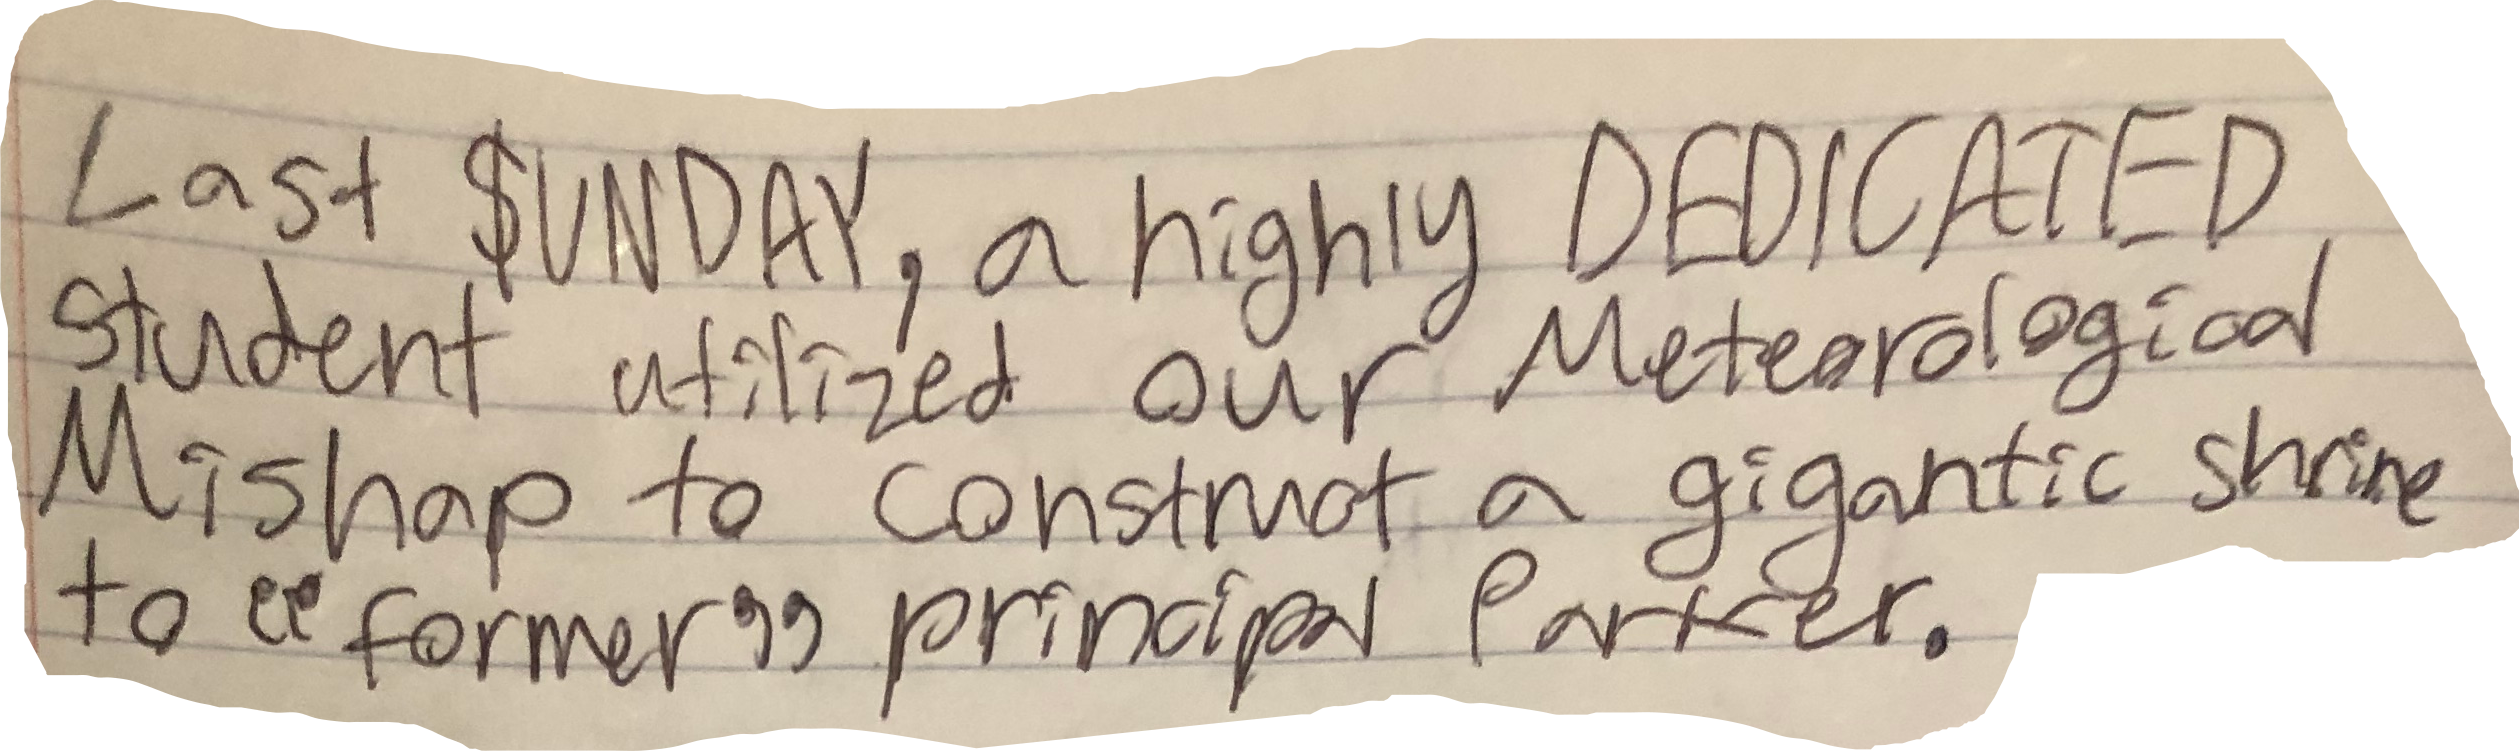 Last $UNDAY, a highly DEDICATED
student utilized our Meteorological
Mishap to construct a gigantic shrine
to “former” principal Parker.